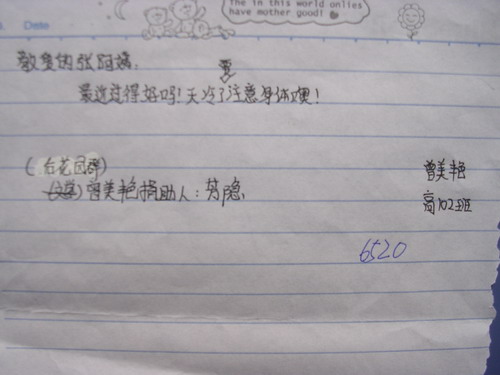 The in this world onlies
have mother good!
Date
敬爱的张阿姨:
要
最近过得好吗!天冷了注意身体噢!
(百花园群)
曾美艳捐助人:芳隐
曾美艳
高102班
6520